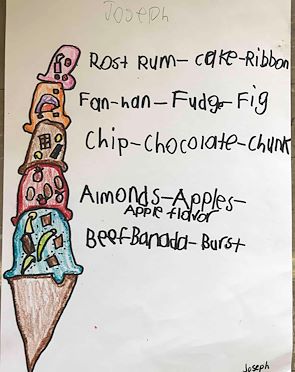 Joseph
Rost Rum-cake-Ribbon
Fan-nan-Fudge-Fig
Chip-Chocolate-chunk
Almonds-Apples-
Apple flavor
Beef-Banada-Burst
Joseph